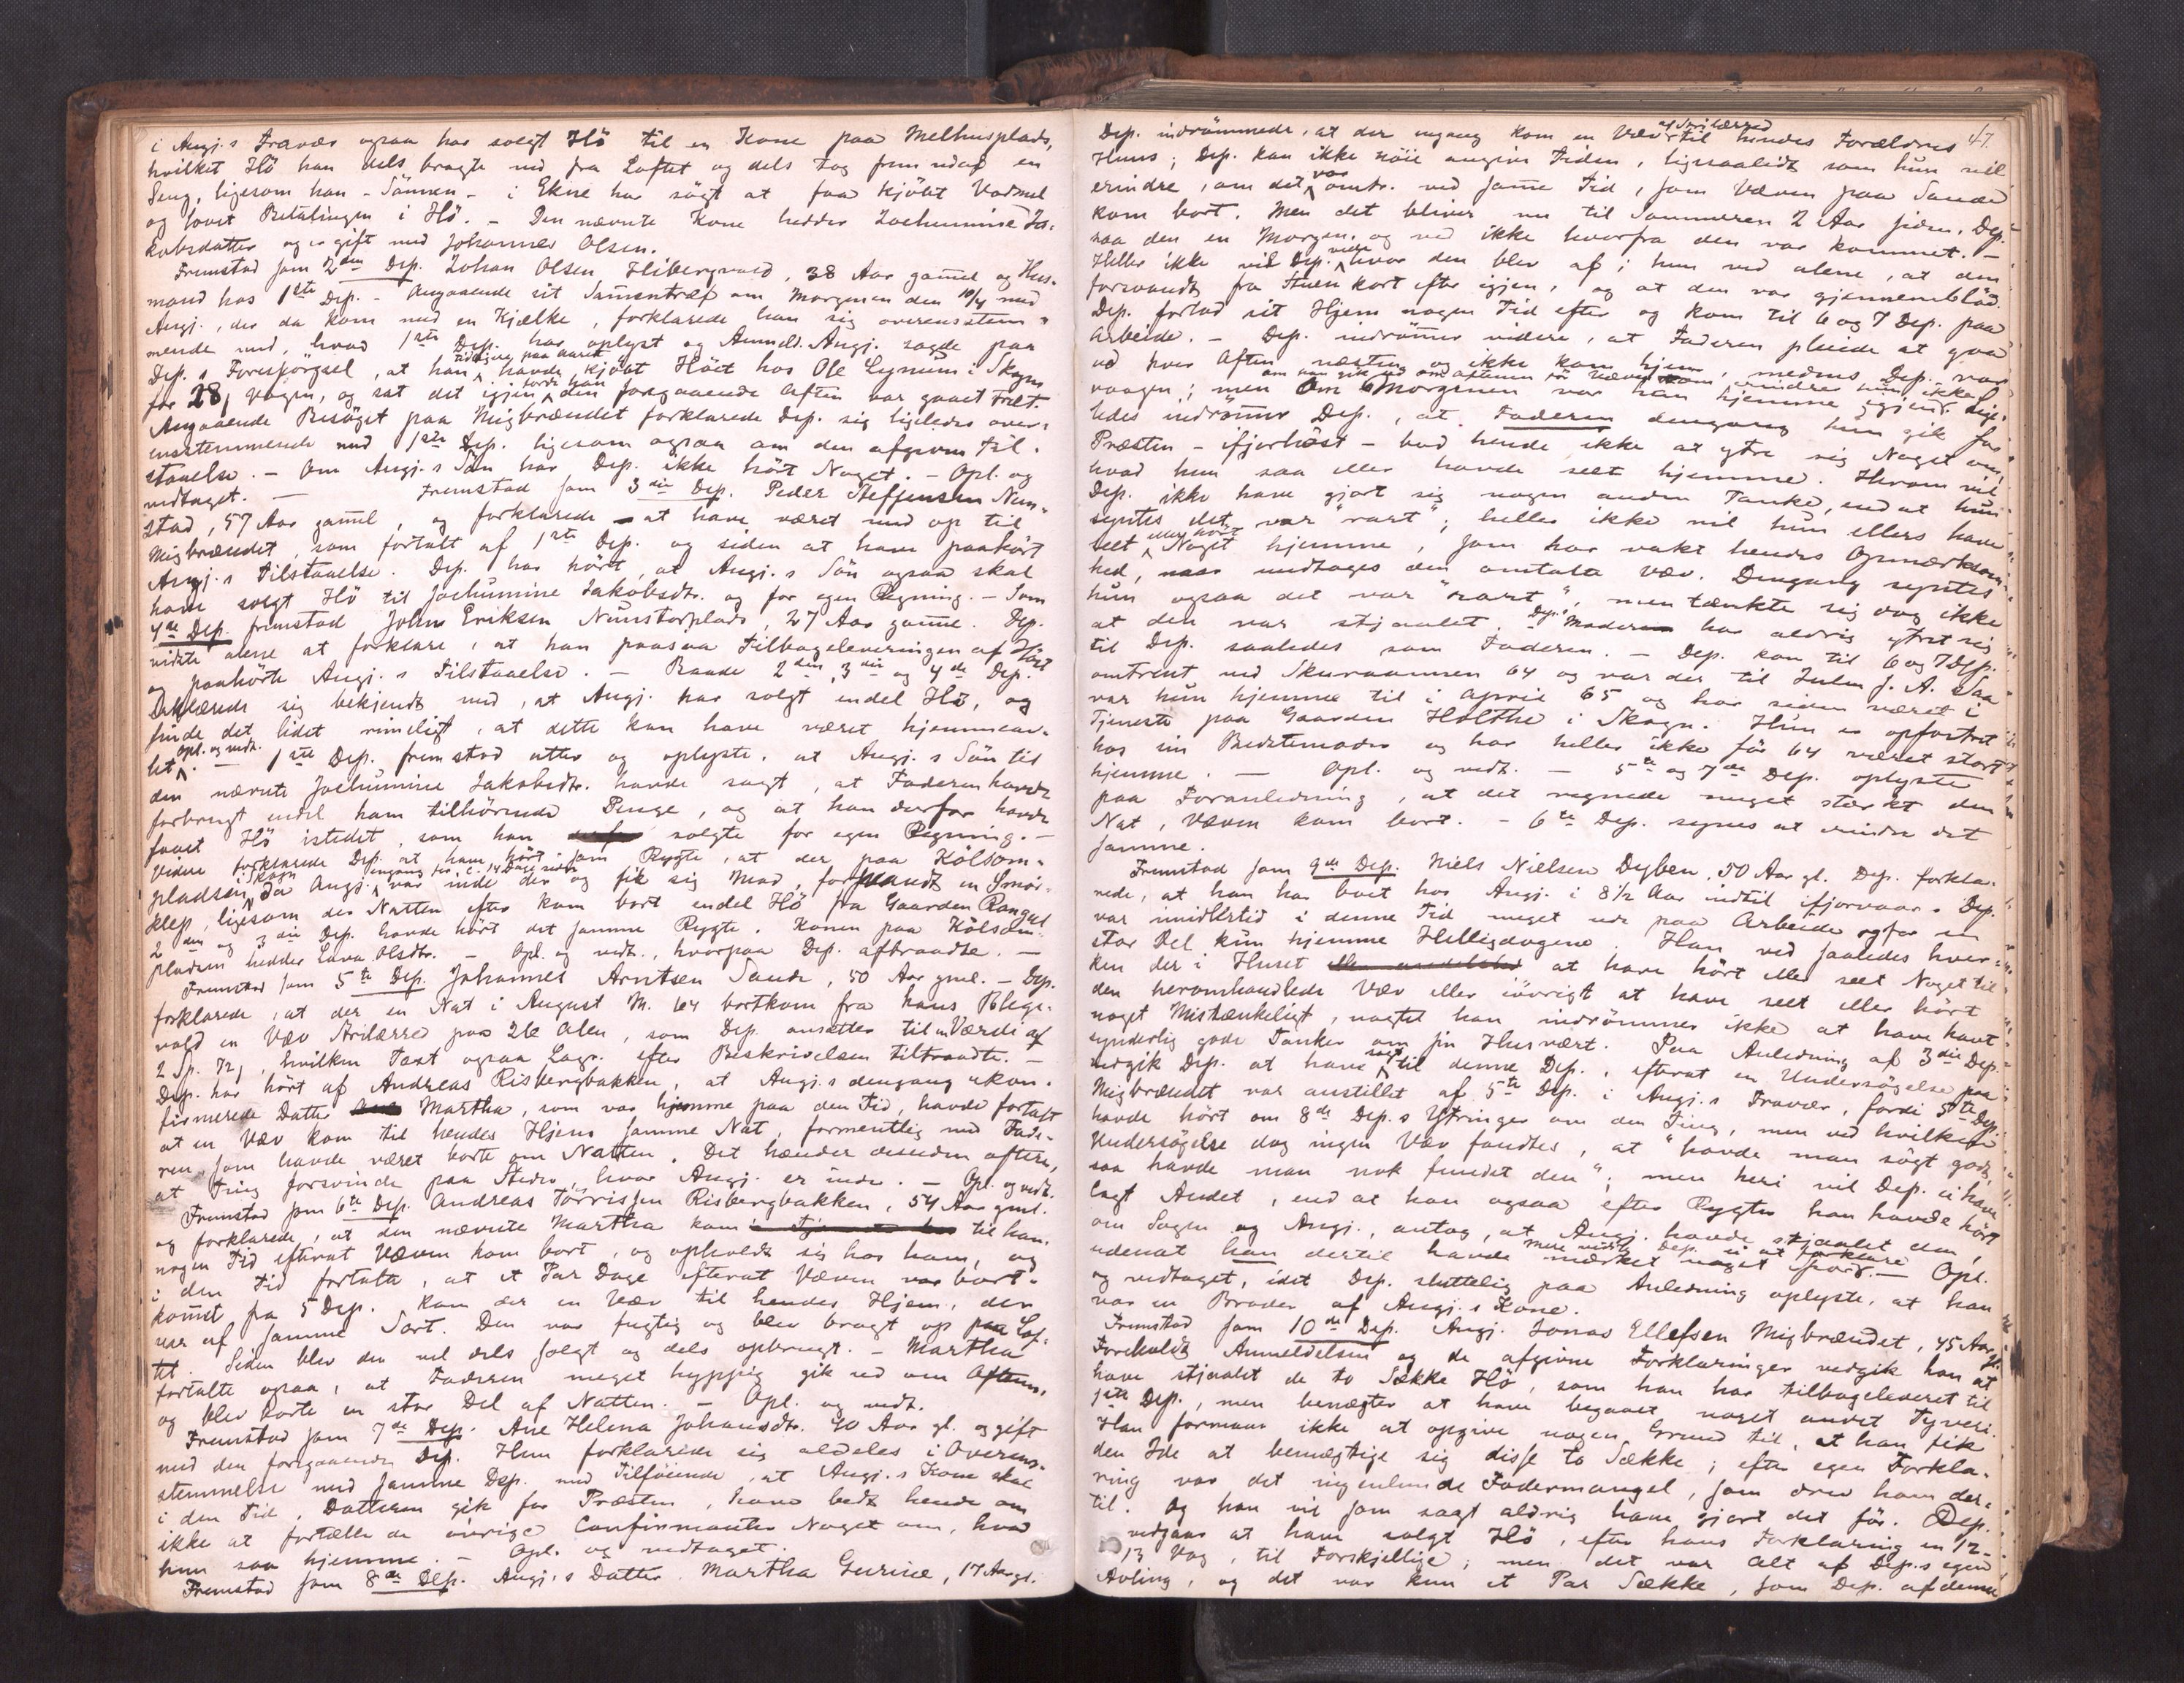 i Angj.s Fravær ogsaa har solgt Hö til en Kone paa Melhusplads,
hvilket Hö han dels bragte ned fra Loftet og dels tog frem under en
Seng, ligesom han - Sönnen - i Ekne har sögt at faa kjöbt Vadmel
og lovet Betalingen i Hö. - Den nævnte Kone hedder Jochumine Ja-
kobsdatter og er gift med Johannes Olsen.
Fremstod som 2den Dep. Johan Olsen Hlibergvald, 38 Aar gamel og Hus-
mand hos 1ste Dep. - Angaaende sit Samentræf om Morgenen den 10/4 med
Angj., der da kom med en Kjælke, forklarede han sig overensstem-
mende med, hvad 1ste Dep. har oplyst og Anmeld. Angj. sagde paa
Dep.s Forespörgsel, at han tidligere paa Aaret havde kjöbt Höet hos Ole Lynum i Skogn
for 28 Vogen, og sat det igjen fordi han den foregaaende Aften var gaaet træt.
Angaaende Besöget paa Migbrændet forklarede Dep. sig ligeledes over-
ensstemmende med 1ste Dep. ligesom ogsaa om den afgivne Til-
staaelse. - Om Angj.s Sön har Dep. ikke hört Noget. - Opl. og
vedtaget. - Fremstod som 3die Dep. Peder Steffensen Nun-
stad, 57 Aar gamel, og forklarede at have været med op til
Migbrændet, som fortalt af 1ste Dep. og siden at have paahört
Angj.s Tilstaaelse. Dep. har hört, at Angj.s Sön ogsaa skal
have solgt Hö til Jochumine Jakobsdtr. og for egen Regning. - Som
4de Dep. fremstod Johan Eriksen Nunstadplads, 27 Aar gamel. Dep.
vidste alene at forklare, at han paasaa Tilbageleveringen af Höet
og paahörte Angj.s Tilstaaelse. - Baade 2den, 3die og 4de Dep.
erklærede sig bekjendt med, at Angj. har solgt endel Hö, og
finde det lidet rimeligt, at dette kan have været hjemmeav-
let. opl. og vedt. - 1ste Dep. fremstod atter og oplyste, at Angj.s Sön til
den nævnte Jochumine Jakobsdtr. havde sagt, at Faderen havde
forbrugt endel ham tilhörende Penge, og at han derfor havde
faaet Hö istedet, som han solgte for egen Regning. -
Videre forklarede Dep. at have hört som Rygte, at der paa Kölsom-
pladsen i Skogn da Angj. engang for c. 14 Dage siden var inde der og fik sig Mad, forsvandt en Smör-
klep, ligesom der Natten efter kom bort endel Hö fra Gaarden Rangul
2den og 3die Dep. havde hört det samme Rygte. Konen paa Kölsom-
pladsen hedder Lava Olsdtr. - Opl. og vedt., hvorpaa Dep. aftraadte. -
Fremstod som 5te Dep. Johannes Arntsen Sande, 50 Aar gml. - Dep.
forklarede, at der en Nat i August M. 64 bortkom fra hans Blege-
vold en Væv Strilærred paa 26 Alen, som Dep. ansætter til en Værdi af
2 Sp. 72, hvilken Taxt ogsaa Lagr. efter Beskrivelsen tiltraadte. -
Dep. har hört af Andreas Risbergbakken, at Angj.s dengang ukon-
firmerede Datter Martha, som var hjemme paa den Tid, havde fortalt
at en Væv kom til hendes Hjem samme Nat, formentlig med Fade-
ren, som havde været borte om Natten. Det hænder desuden oftere,
at Ting forsvinde paa Steder, hvor Angj. er inde. - Opl. og vedt.
Fremstod som 6te Dep. Andreas Törrissen Risbergbakken, 54 Aar gml.
og forklarede, at den nævnte Martha kom til ham
nogen Tid efterat Væven kom bort, og opholdt sig hos ham, og
i den Tid fortalte, at et Par Dage efterat Væven var bort-
komet fra 5 Dep. kom der en Væv til hendes Hjem, der
var af samme Sort. Den var fugtig og blev bragt op paa Lof-
tet. Siden blev den vel dels solgt og dels opbrugt. - Martha
fortalte ogsaa, at Faderen meget hyppig gik ud om Aftenen,
og blev borte en stor Del af Natten. - Opl. og vedt.
Fremstod som 7de Dep. Ane Helena Johansdtr. 40 Aar gl. og gift
med den foregaaende Dep. Hun forklarede sig aldeles i Overens-
stemmelse med samme Dep. med Tilföiende, at Angj.s Kone skal
i den Tid, Datteren gik for Præsten, have bedt hende om
ikke at fortælle de övrige Confirmanter Noget om, hvad
hun saa hjemme. - Opl. og vedtaget.
Fremstod som 8de Dep. Angj.s Datter Martha Gurine, 17 Aar gl.
47.
Dep. indrömmede, at der engang kom en Væv af Strilærred til hendes Forældres
Huus; Dep. kan ikke nöie angive Tiden, ligesaalidt som hun vil
erindre, om det var omtr. ved same Tid, som Væven paa Sande
kom bort. Men det bliver nu til Sommeren 2 Aar siden. Dep.
saa den en Morgen, og ved ikke hvorfra den var kommet. -
Heller ikke vil Dep. vide hvor den blev af; hun ved alene, at den
forsvandt fra Stuen kort efter igjen, og at den var gjennemblöd.
Dep. forlod sit Hjem nogen Tid efter og kom til 6 og 7 Dep. paa
Arbeide. - Dep. indrömmer videre, at Faderen pleiede at gaa
ud hver Aften næsten og ikke kom hjem, medens Dep. var
vaagen; om han gik ud om Aftenen för Væven kom, erindrer hun ikke; men Om Morgenen var han hjemme igjen. Lige-
ledes indrömmer Dep., at Faderen dengang hun gik for
Præsten - ifjorhöst - bad hende ikke at ytre sig Noget om,
hvad hun saa eller havde seet hjemme. Herom vil
Dep. ikke have gjort sig nogen anden Tanke, end at hun
syntes det var "rart"; heller ikke vil hun ellers have
seet eller hört Noget hjemme, som har vakt hendes Opmærksom-
hed, naar undtages den omtalte Væv. Dengang syntes
hun ogsaa det var "rart", men tænkte sig dog ikke
at den var stjaalet. Dep.s Moder har aldrig ytret sig
til Dep. saaledes som Faderen. - Dep. kom til 6 og 7 Dep.
omtrent ved Skuraannen 64 og var der til Julen s. A. Saa
var hun hjemme til i April 65 og har siden været i
Tjeneste paa Gaarden Holthe i Skogn. Hun er opfostret
hos sin Bedstemoder og har heller ikke för 64 været stort
hjemme. - Opl. og vedt. - 5te og 7de Dep. oplyste
paa Foranledning, at det regnede meget stærkt den
Nat, Væven kom bort. - 6te Dep. synes at erindre det
samme.
Fremstod som 9de Dep. Niels Nielsen Dyben, 50 Aar gl. Dep. forkla-
rede, at han har boet hos Angj. i 8½ Aar indtil ifjorvaar. Dep.
var imidlertid i denne Tid meget ude paa Arbeide og for en
stor Del kun hjemme Helligdagene. Han ved saaledes hver-
ken der i Huset at have hört eller seet Noget til
den heromhandlede Væv eller iövrigt at have seet eller hört
noget Mistænkeligt, uagtet han indrömmer ikke at have havt
synderlig gode Tanker om sin Husvært. Paa Anledning af 3die Dep.
vedgik Dep. at have sagt til denne Dep., efterat en Undersögelse paa
Migbrændet var anstillet af 5te Dep. i Angj.s Fravær, fordi 5te Dep.
havde hört om 8de Dep.s Ytringer om den Ting, men ved hvilken
Undersögelse dog ingen Væv fandtes, at "havde man sögt godt
saa havde man nok fundet den"; men heri vil Dep. ei have
lagt Andet, end at han ogsaa efter Rygter han havde hört
om Sagen og Angj., antog, at Angj. havde stjaalet den,
udenat han dertil havde mærket noget Spor. - mere vidste Dep. ei at forklare Opl.
og vedtaget, idet Dep. sluttelig paa Anledning oplyste, at han
var en Broder af Angj.s Kone.
Fremstod som 10de Dep. Angj. Jonas Ellefsen Migbrændet, 45 Aar gl.
Foreholdt Anmeldelsen og de afgivne Forklaringer vedgik han at
have stjaalet de to Sække Hö, som han har tilbageleveret til
1ste Dep., men benægter at have begaaet noget andet Tyveri.
Han formaar ikke at opgive nogen Grund til, at han fik
den Ide at bemægtige sig disse to Sække; efter egen Forkla-
ring var det ingenlunde Fodermangel, som drev ham der-
til. Og han vil som sagt aldrig have gjort det för. Dep.
vedgaar at have solgt Hö, efter hans Forklaring en 12-
13 Vog, til Forskjellige; men det var Alt af Dep.s egen
Avling, og det var kun et Par Sække, som Dep. af denne